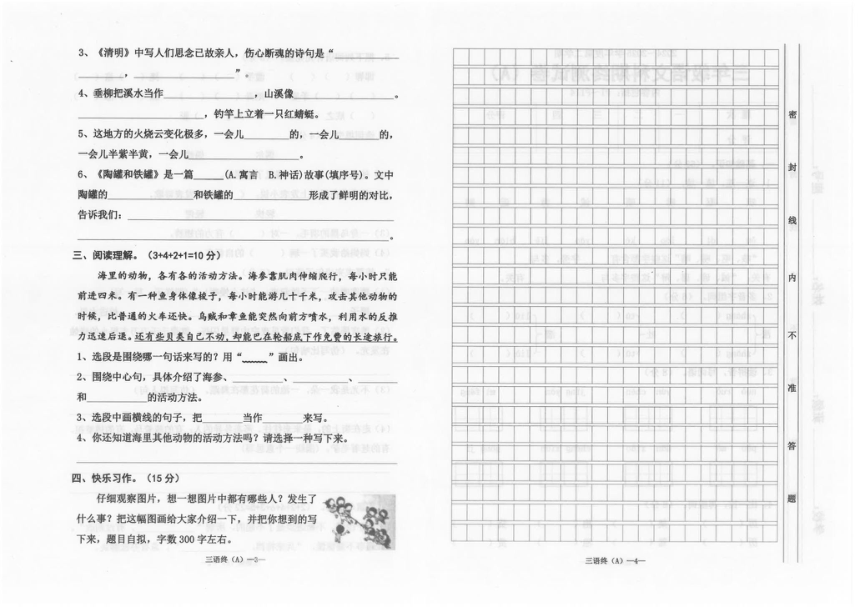 3、《清明》中写人们思念已故亲人，伤心断魂的诗句是“
，”。
4、垂柳把溪水当作，山溪像。
，钓竿上立着一只红蜻蜓。
5、这地方的火烧云变化极多，一会儿的，一会儿的，
一会儿半紫半黄，一会儿。
6、《陶罐和铁罐》是一篇(A.寓言 B.神话)故事(填序号)。文中
陶罐的和铁罐的形成了鲜明的对比，
告诉我们：
。
三、阅读理解。（3+4+2+1=10 分）
海里的动物，各有各的活动方法。海参靠肌肉伸缩爬行，每小时只能
前进四米。有一种鱼身体像梭子，每小时能游几十千米，攻击其他动物的
时候，比普通的火车还快。乌贼和章鱼能突然向前方喷水，利用水的反推
力迅速后退。还有些贝类自己不动，却能巴在轮船底下作免费的长途旅行。
1、选段是围绕哪一句话来写的？用“”画出。
2、围绕中心句，具体介绍了海参、、、
和的活动方法。
3、选段中画横线的句子，把当作来写。
4、你还知道海里其他动物的活动方法吗？请选择一种写下来。
四、快乐习作。（15 分）
仔细观察图片，想一想图片中都有哪些人？发生了
什么事？把这幅图画给大家介绍一下，并把你想到的写
下来，题目自拟，字数 300 字左右。
三语终（A）—3—
三语终（A）—4—
密
封
线
内
不
准
答
题